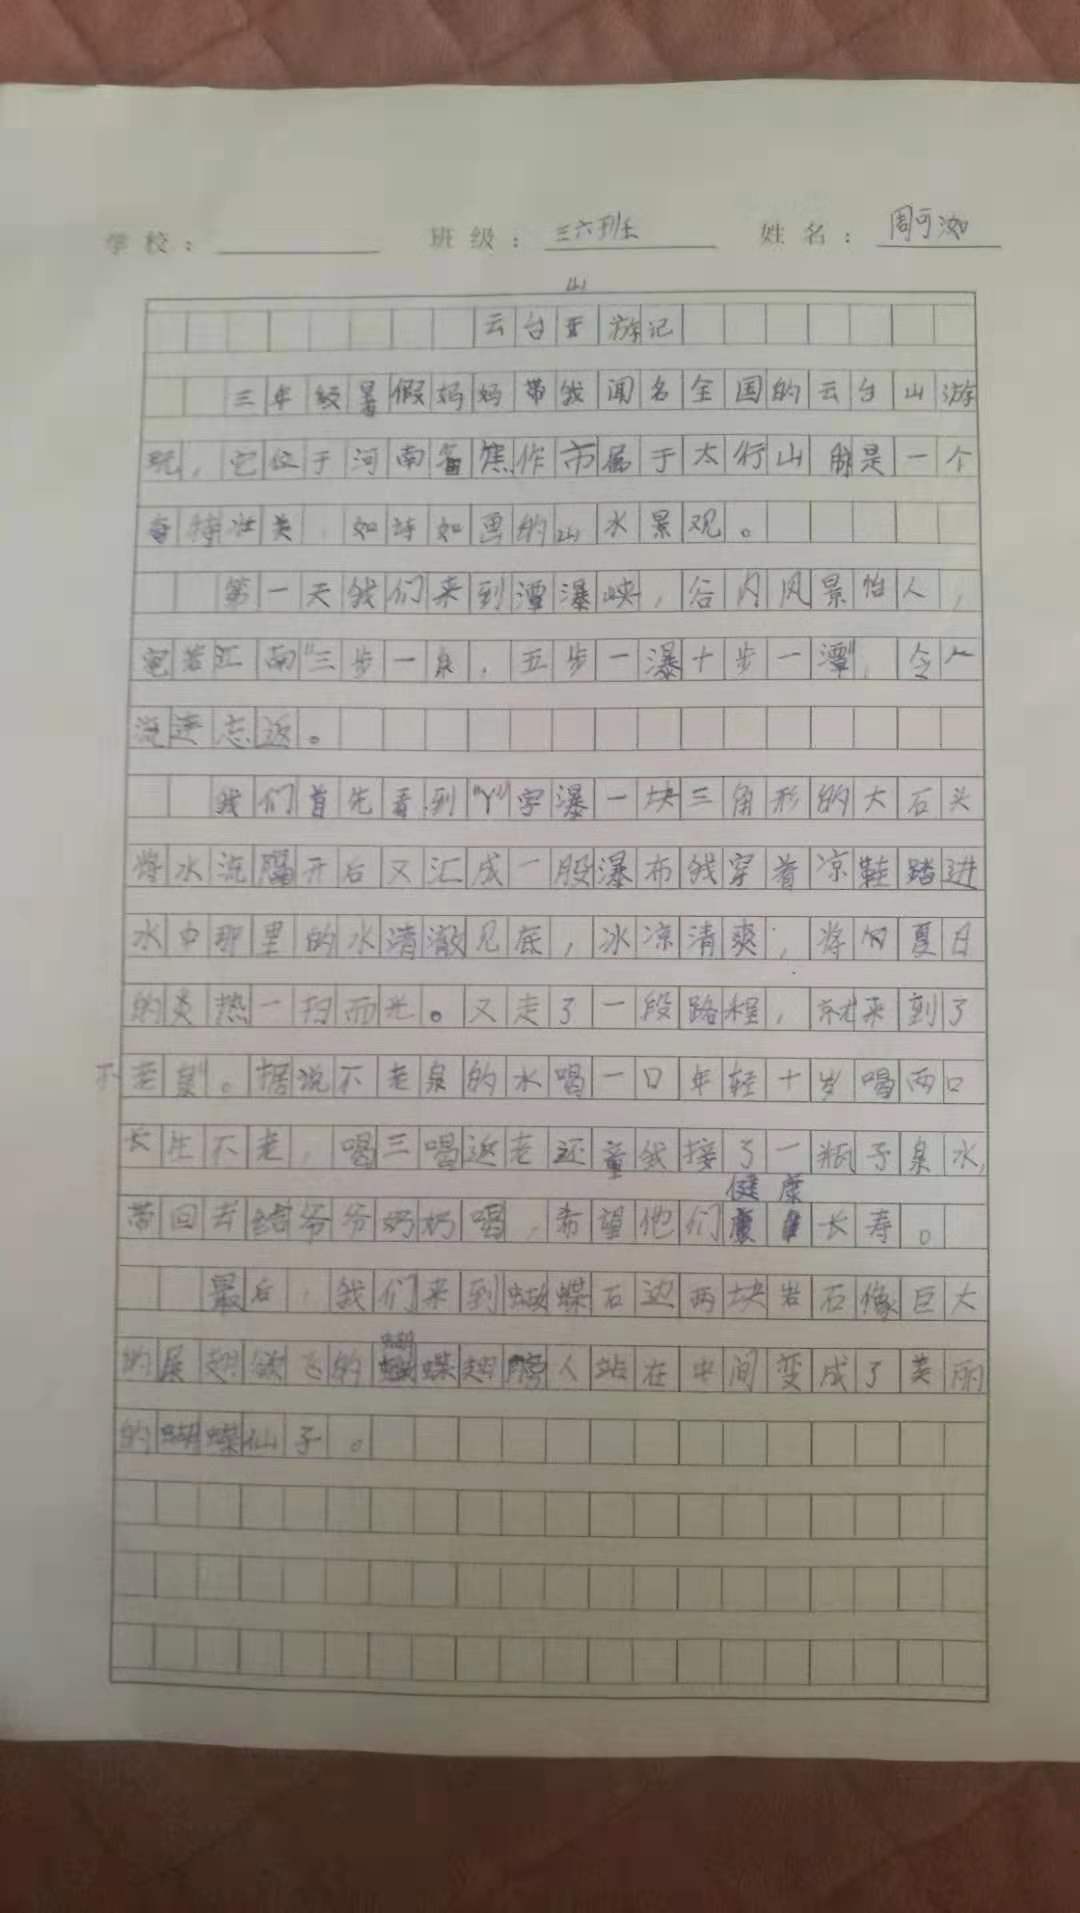 学校： 班级：三六班 姓名：周可汝
山
云台 游记
三年级暑假妈妈带我闻名全国的云台山游
玩，它位于河南省焦作市属于太行山脉是一个
奇特壮美，如诗如画的山水景观。
第一天我们来到潭瀑峡，谷内风景怡人，
宛若江南"三步一泉，五步一瀑十步一潭"，令人
流连志返。
我们首先看到"Y"字瀑一块三角形的大石头
将水流隔开后又汇成一股瀑布我穿着凉鞋踏进
水中那里的水清澈见底，冰凉清爽，将 夏日
的炎热一扫而光。又走了一段路程，就来到了
不老泉"。据说不老泉的水喝一口年轻十岁喝两口
长生不老，喝三喝返老还童我接了一瓶子泉水，
健康
带回去给爷爷奶奶喝，希望他们 长寿。
最后，我们来到蝴蝶石边两块岩石像巨大
的展翅欲飞的蝴蝶翅膀人站在中间变成了美丽
的蝴蝶仙子。